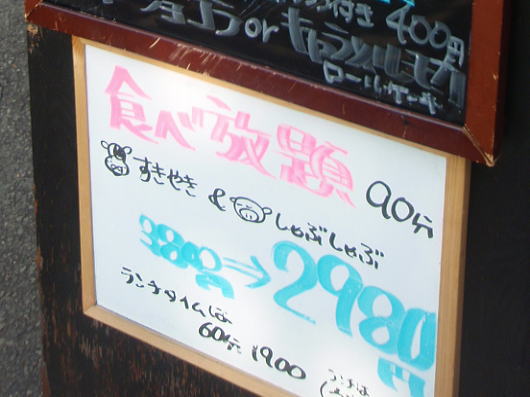 付き 400円
ロールケーキ
食べ放題 90分
すきやき & しゃぶしゃぶ
3800円→2980円
ランチタイムは
60分 1900